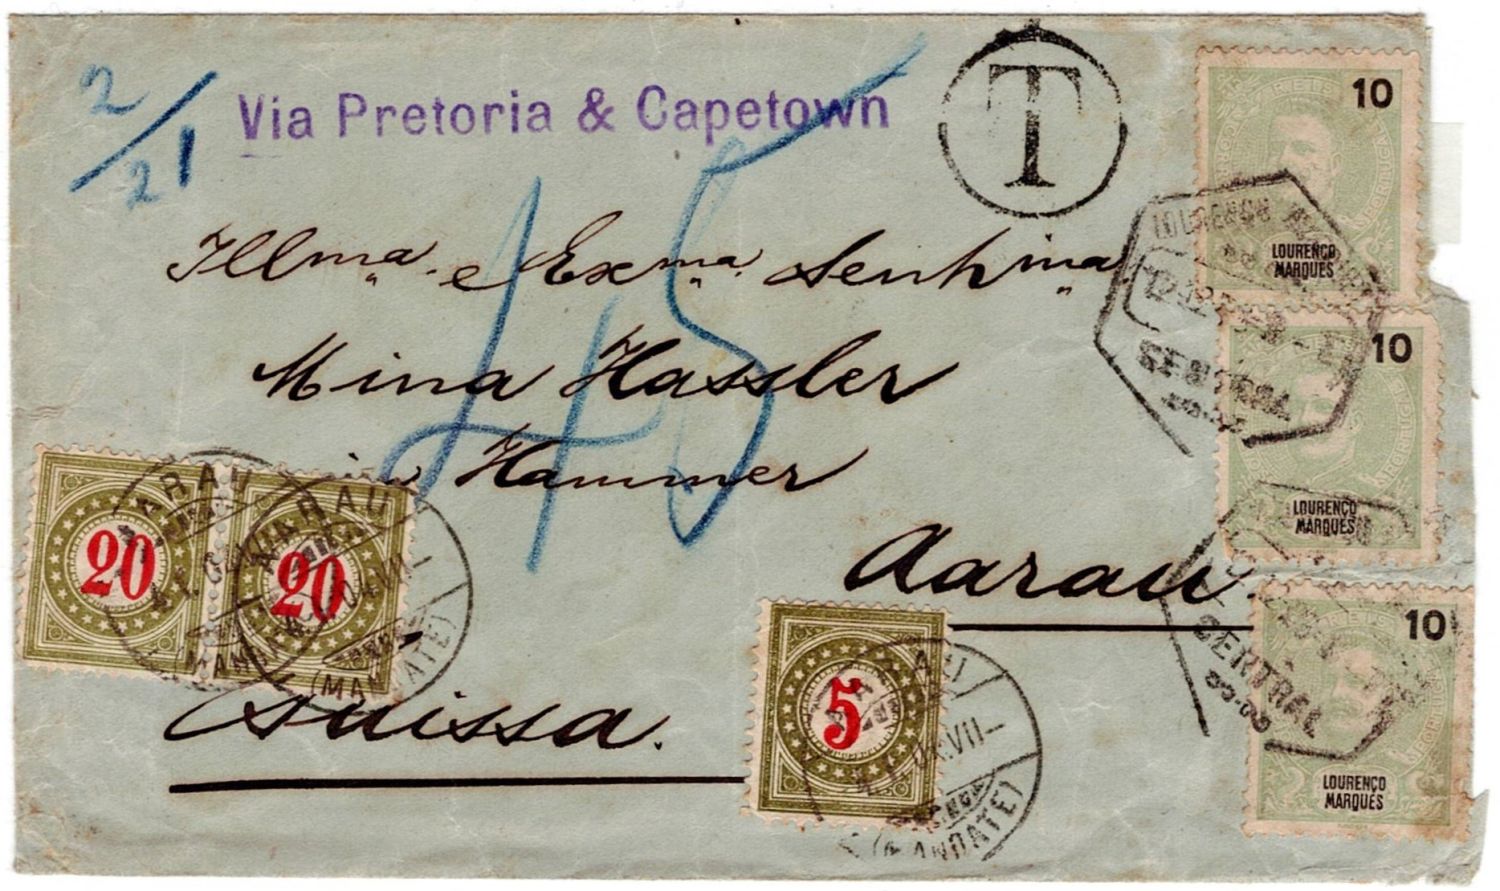 2/21
Via Pretoria & Capetown
T
45
Illma. e Exma. Senhma
Mina Hassler
Hammer
Aarau.
Suissa.
10
LOURENÇO
MARQUES
10
LOURENÇO
MARQUES
10
LOURENÇO
MARQUES
LOURENÇO
CENTRAL
20
20
5
AARAU
(MANDATE)
AARAU
(MANDATE)
VII
(MANDATE)